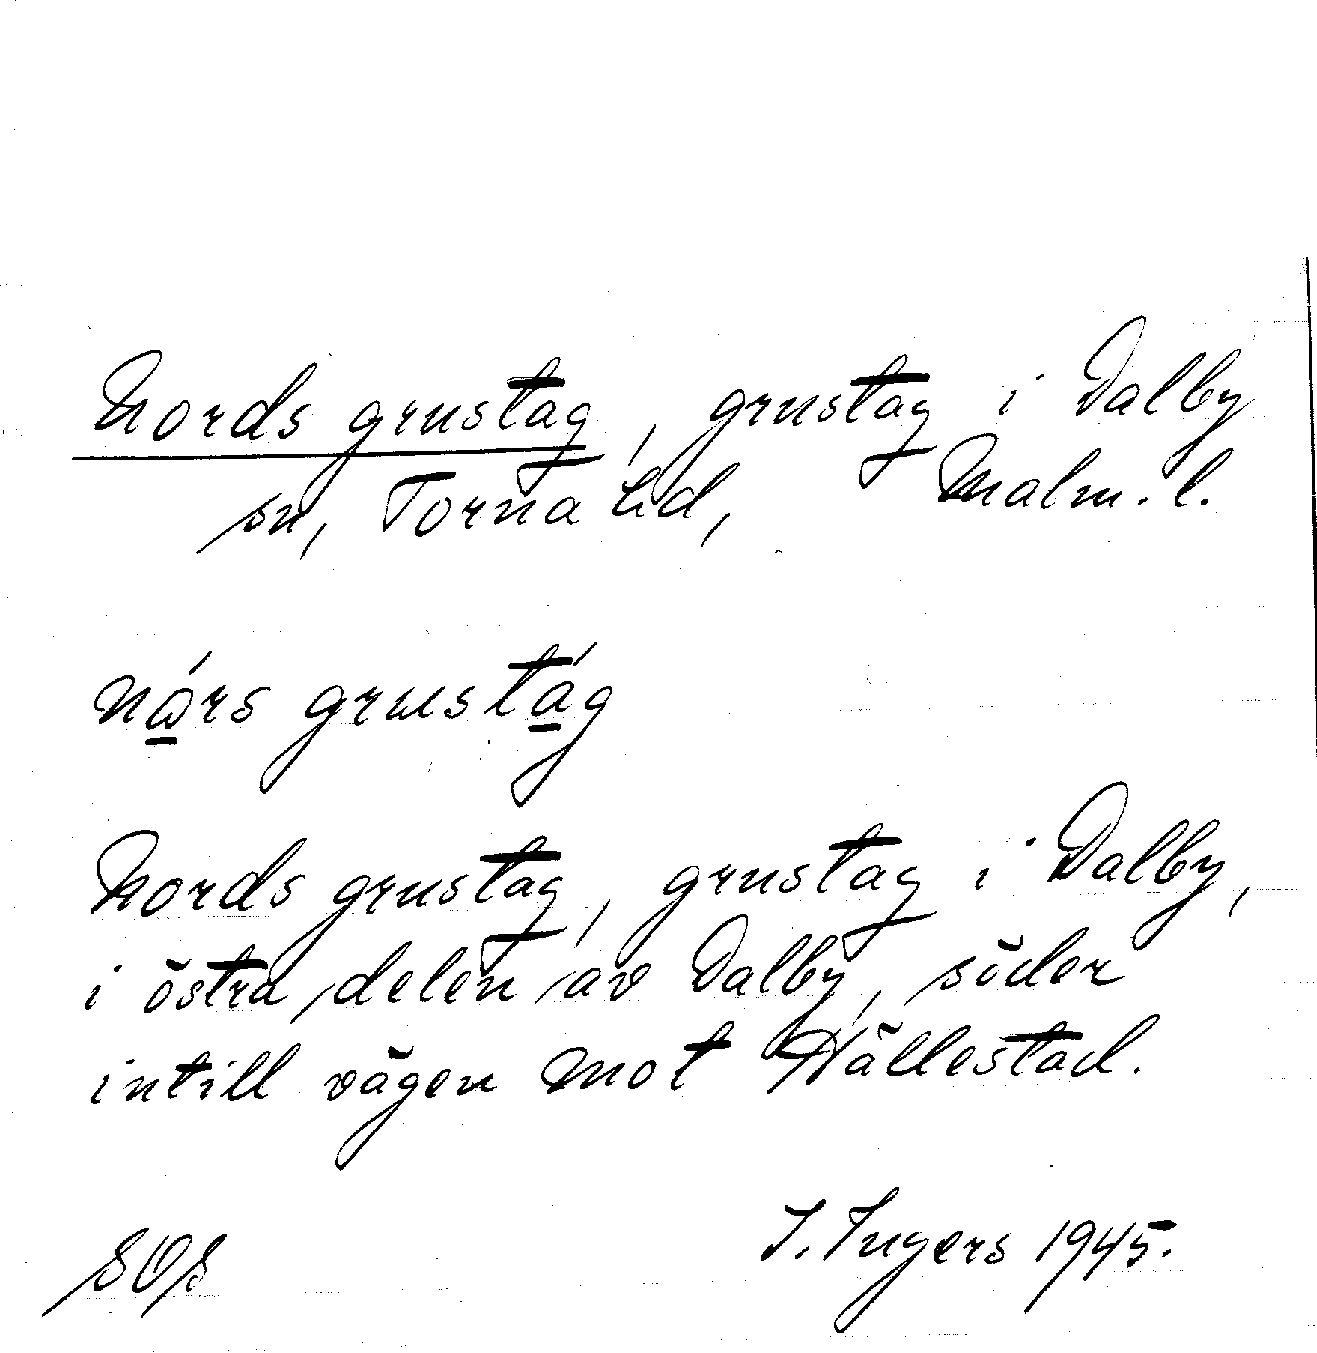 Nords grustag, grustag i Dalby
sn, Torna hd, Malm. l.
nórs grustág
Nords grustag, grustag i Dalby,
i östra delen av Dalby, söder
intill vägen mot Hällestad.
SOS I. Ingers 1945.